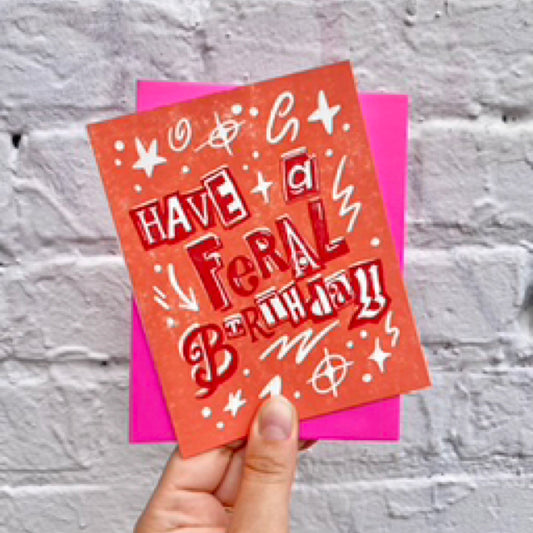 HAVE a
FeRAL
BiRtHdaY